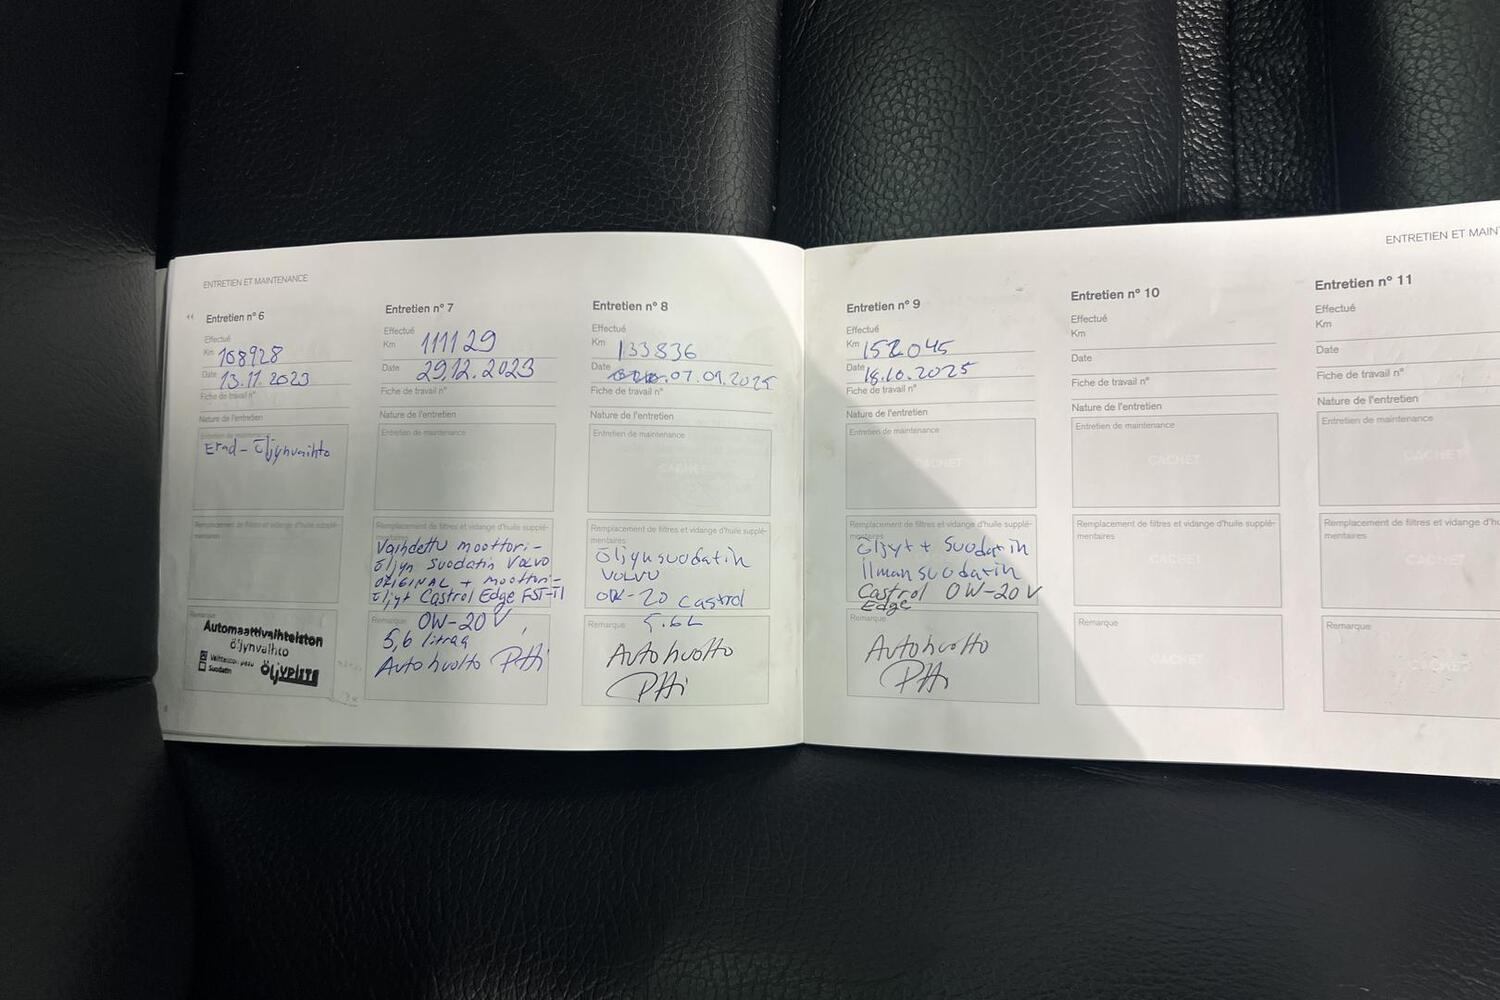 ENTRETIEN ET MAINTENANCE
Entretien n° 6
Effectué
Km 108928
Date 13.11.2023
Fiche de travail n°
Nature de l'entretien
Entretien de maintenance
Erad - Öljynvaihto
Remplacement de filtres et vidange d'huile supplé-
mentaires
Remarque
Automaattivaihteiston
öljynvaihto
Suodatin
ÖLJYPISTE
Entretien n° 7
Effectué
Km 111129
Date 29.12.2023
Fiche de travail n°
Nature de l'entretien
Entretien de maintenance
CACHET
Remplacement de filtres et vidange d'huile supplé-
mentaires
Vaihdettu moottori-
öljyn suodatin Volvo
ORIGINAL + moottori-
öljyt Castrol Edge FST-TI
Remarque OW-20 V
5,6 litraa
Autohuolto
Entretien n° 8
Effectué
Km 133836
Date 07.09.2025
Fiche de travail n°
Nature de l'entretien
Entretien de maintenance
CACHET
Remplacement de filtres et vidange d'huile supplé-
mentaires
Öljynsuodatin
VOLVO
OW-20 Castrol
Remarque 5.6L
Autohuolto
ENTRETIEN ET MAINT
Entretien n° 9
Effectué
Km 152045
Date 18.10.2025
Fiche de travail n°
Nature de l'entretien
Entretien de maintenance
CACHET
Remplacement de filtres et vidange d'huile supplé-
mentaires
Öljyt + Suodatin
ilmansuodatin
Castrol OW-20 V
Edge
Remarque
Autohuolto
Entretien n° 10
Effectué
Km
Date
Fiche de travail n°
Nature de l'entretien
Entretien de maintenance
CACHET
Remplacement de filtres et vidange d'huile supplé-
mentaires
CACHET
Remarque
CACHET
Entretien n° 11
Effectué
Km
Date
Fiche de travail n°
Nature de l'entretien
Entretien de maintenance
CACHET
Remplacement de filtres et vidange d'hu
mentaires
CACHET
Remarque
CACHET